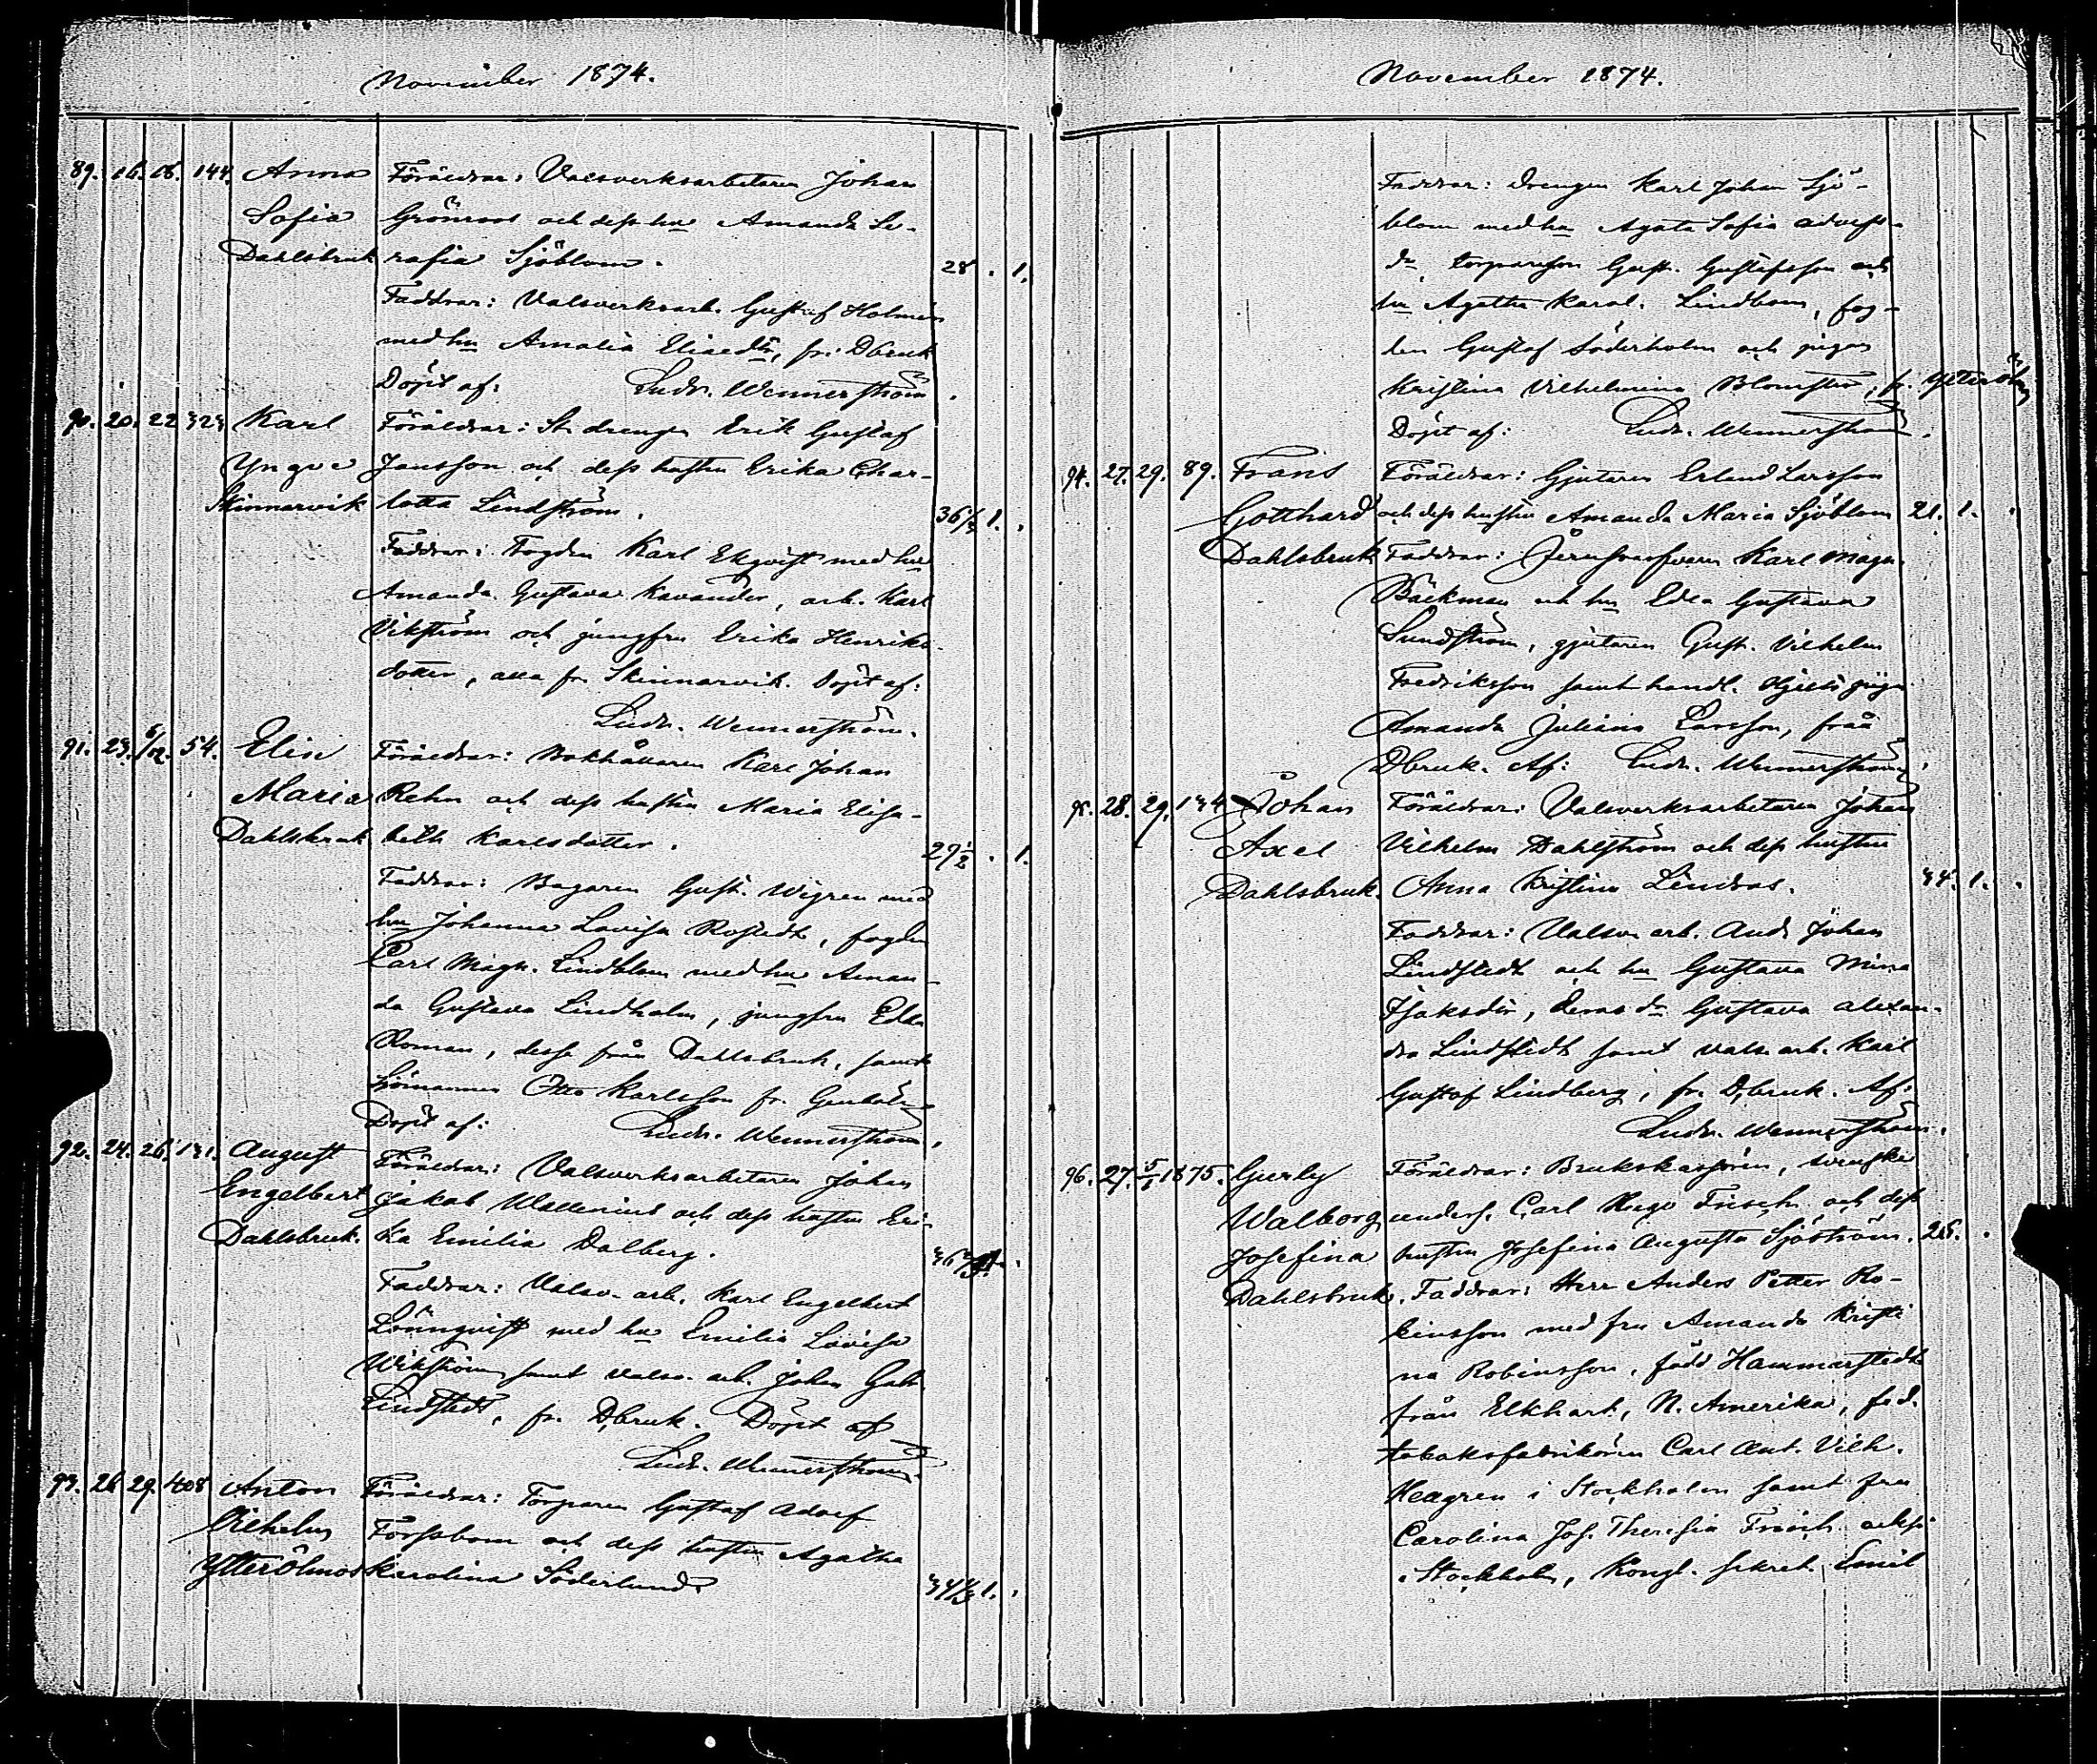 November 1874.
89. 16. 18. 144. Anna Föräldrar: Valsverksarbetaren Johan
Sofia Grönroos och dess hu Amanda Se-
Dahlsbruk rafia Sjöblom. 28. 1.
Faddrar: Valsverksarb. Gustaf Holmén
med hu Amalia Elisedr, fr. Dbruk
Döpt af: Ludv. Wennerström.
90. 20. 22. 323 Karl Föräldrar: St. drengen Erik Gustaf
Yngve Jansson och dess hustru Erika Char-
Skinnarvik lotta Lindström. 36 1/2 1.
Faddrar: Fogden Karl Ekqvist med hu
Amanda Gustava Kavander, arb. Karl
Vikström och jungfru Erika Henriks-
dotter, alla fr. Skinnarvik. Döpt af:
Ludv. Wennerström.
91. 23. 6/12. 54. Elin Föräldrar: Bokhållaren Karl Johan
Maria Rehn och dess hustru Maria Elisa-
Dahlsbruk beth Karlsdotter. 29 1/2 . 1.
Faddrar: Bagaren Gust. Wigren med
hu Johanna Lovisa Rostedt, fogden
Carl Magn. Lindblom med hu Aman-
da Gustava Lindholm, jungfru Edla
Roman, dessa från Dahlsbruk, samt
Sjömannen Otto Karlsson fr.
Döpt af: Ludv. Wennerström.
92. 24. 26. 131. August Föräldrar: Valsverksarbetaren Johan
Engelbert Jakob Wallenius och dess hustru Eri-
Dahlsbruk. ka Emilia Dalberg. 36
Faddrar: Valsv. arb. Karl Engelbert
Lönnqvist med hu Emilia Lovisa
Wikström samt valsv. arb. Johan Gab.
Lindstedt, fr. Dbruk. Döpt af
Ludv. Wennerström.
93. 26 29. 408 Anton Föräldrar: Torparen Gustaf Adolf
Vilhelm Forssbom och dess hustru Agatha
Ytterölmos Karolina Söderlund. 34 1/3 1.
November 1874.
Faddrar: Drengen Karl Johan Sjö-
blom med hu Agata Sofia Adolfs-
dr, torpareson Gust. Gustafsson och
hu Agatha Karol. Lindbom, fog-
den Gustaf Söderholm och pigan
Kristina Vilhelmina Blomster, fr. Ytterölmos
Döpt af: Ludv. Wennerström.
94. 27. 29. 89. Frans Föräldrar: Gjutaren Erland Larsson
Gotthard och dess hustru Amanda Maria Sjöblom 21. 1.
Dahlsbruk Faddrar: Karl Magn.
Bäckman och hu Edla Gustava
Sundström, gjutaren Gust. Vilhelm
Fredriksson samt handl. piga
Amanda Juliana Larsson, från
Dbruk. Af: Ludv. Wennerström.
95. 28. 29. 134 Johan Föräldrar: Valsverksarbetaren Johan
Axel Vilhelm Dahlström och dess hustru
Dahlsbruk. Anna Kristina Lindros. 34. 1.
Faddrar: Valsv. arb. And. Johan
Lindstedt och hu Gustava Mina
Isaksdr, deras dr Gustava Alexan-
dra Lindstedt samt valsv. arb. Karl
Gustaf Lindberg, fr. D.bruk. Af:
Ludv. Wennerström.
96. 27. 5/1 1875. Gurly Föräldrar: Brukskassören, svenske
Walborg unders. Carl Hugo Frisch och dess
Josefina hustru Josefina Augusta Sjöström. 25.
Dahlsbruk. Faddrar: Herr Anders Petter Ro-
binsson med fru Amanda Kristi
na Robinsson, född Hammarstedt
från Elkhart, N. Amerika, f.d.
tobaksfabrikören Carl Ant. Vilh.
Heagren i Stockholm samt fru
Carolina Jos. Theresia Frisch också
i Stockholm, Kongl. sekret. Emil